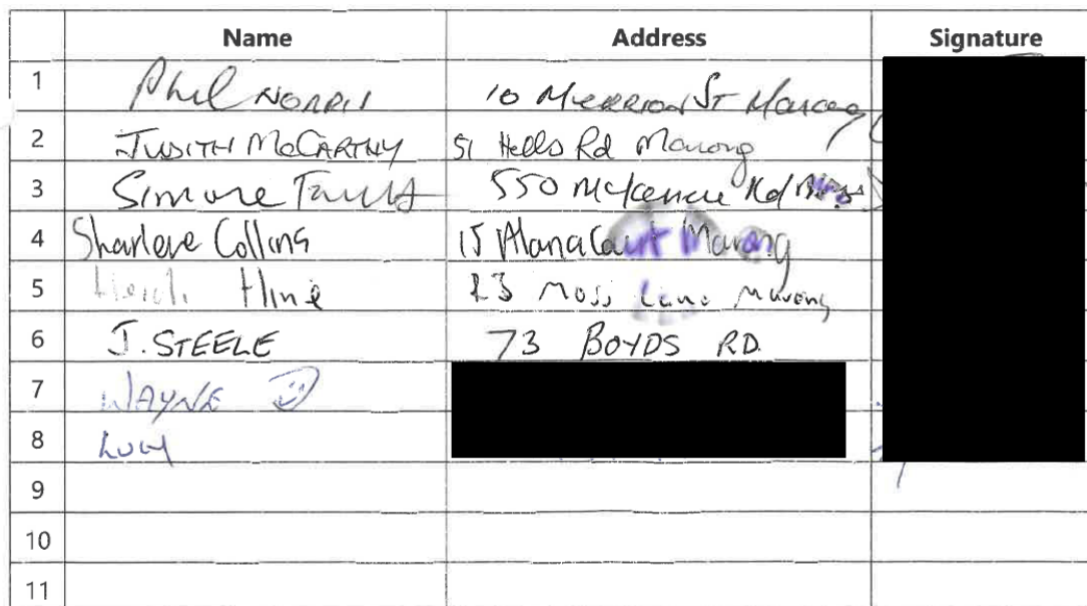 Name Address Signature
1 Phil NORRIS 10 St Marong
2 JUDITH McCARTHY 51 Hells Rd Marong
3 Simone 550 McKenzie Rd
4 Sharlene Collins 15 Alana Court Marong
5 Heidi Hine 23 Moss Lane Marong
6 J. STEELE 73 BOYDS RD.
7 WAYNE
8 Lucy
9
10
11